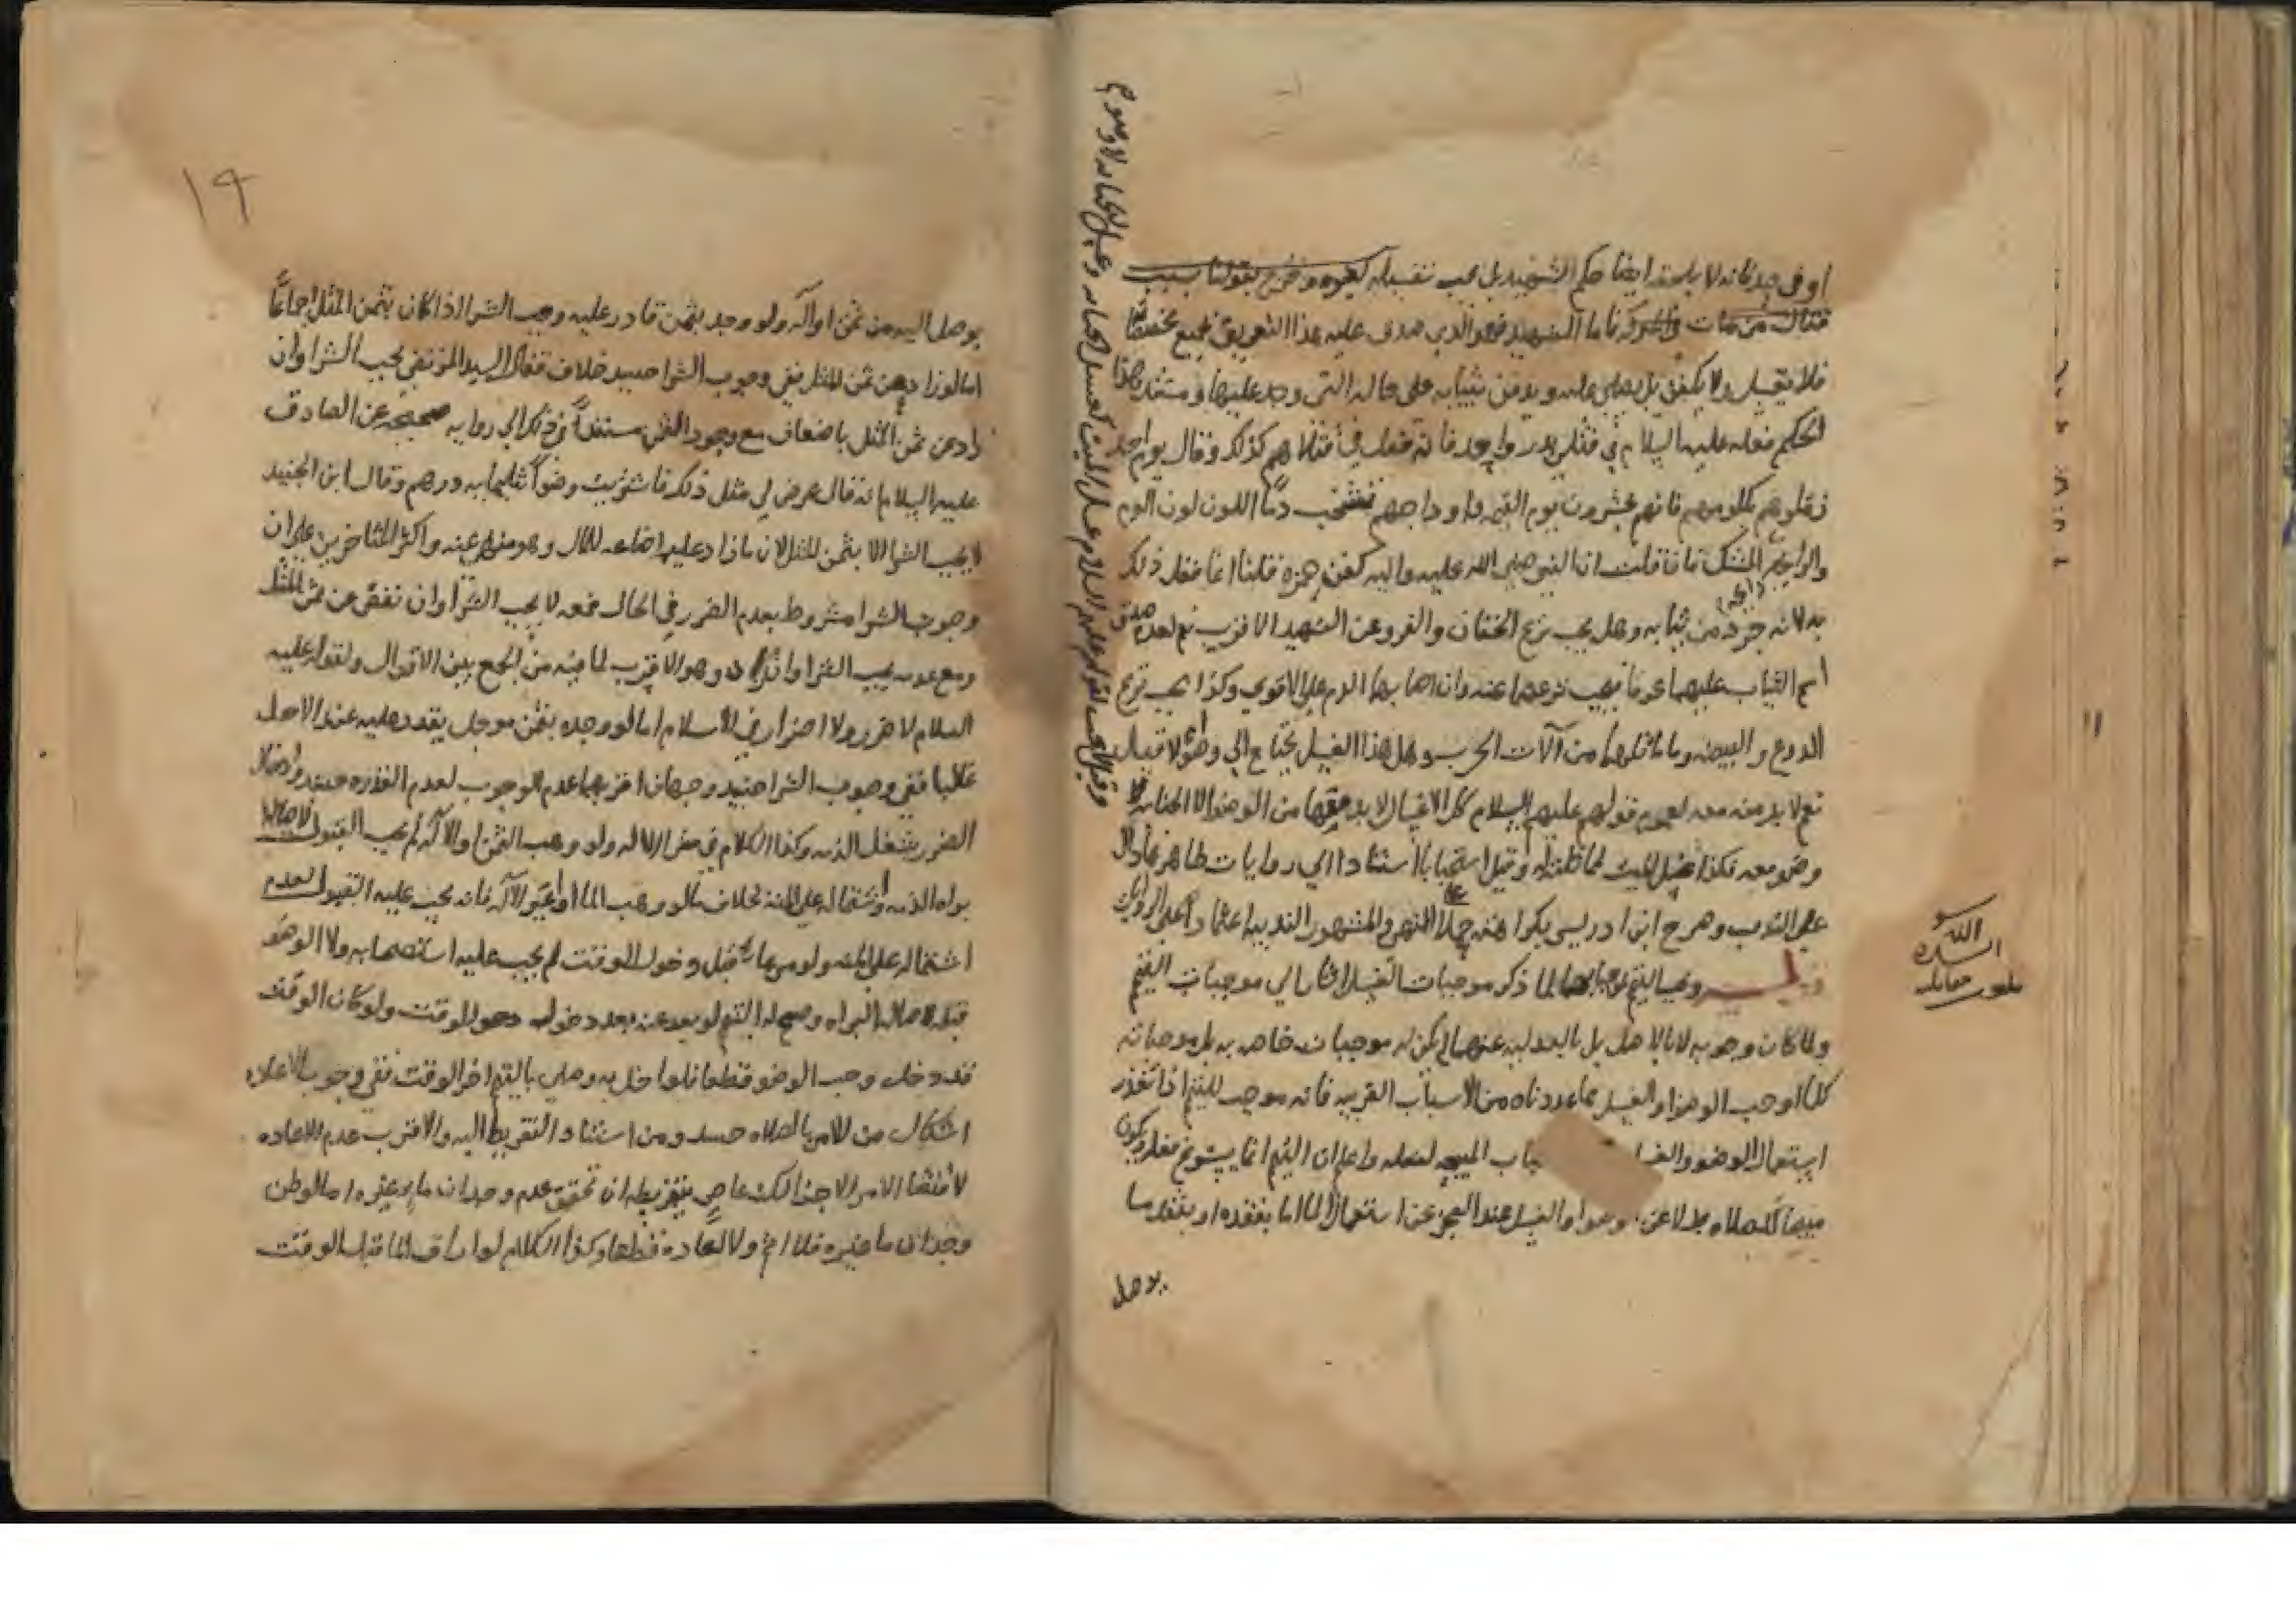 او في حده فانه لا يلحقه ايضا حكم الشهيد بل يجب تغسيله كغيره وخرج بقولنا بسبب
قتال من مات في المعركة فاما الشهيد فهو الذي صدق عليه هذا التعريف
فلا يغسل ولا يكفن بل يصلى عليه ويدفن بثيابه على حاله التي وجد عليها ومستند هذا
الحكم فعله عليه السلام في قتلى بدر واحد فانه فعل في قتلاهم كذلك وقال يوم احد
زملوهم بكلومهم فانهم يحشرون يوم القيمه واوداجهم تشخب دما اللون لون الدم
والرايحه المسك فان قلت ان النبي صلى الله عليه واله كفن حمزه قلنا انما فعل ذلك
به لانه جرد من ثيابه وهل يجب نزع الخفان والفرو عن الشهيد الاقرب نعم لعدم صدق
اسم الثياب عليهما عرفا فيجب نزعهما عنه وان اصابهما الدم على الاقوى وكذا يجب نزع
الدرع والبيضه وما ماثلهما من آلات الحرب وهل هذا الغسل يحتاج الى وضوء لا قيل
نعم لا بد منه معه لعموم قولهم عليهم السلام كل الاغسال لا بد معها من الوضو الا الجنابه فلا
وضو معه فكذا غسل الميت لما قلناه وقيل استحبابا استنادا الى روايات ظاهرها دال
على الندب وصرح ابن ادريس بكراهته حملا على النهي والمشهور الندبيه اعتمادا على الروايات
ويجب التيمم بموجباتهما لما ذكر موجبات الغسل اشار الى موجبات التيمم
ولما كان وجوبه لا بالاصل بل بالبدليه عنهما لم يكن له موجبات خاصه به بل موجباته
كلما اوجب الوضو او الغسل مما عددناه من الاسباب القريبه فانه موجب للتيمم اذا تعذر
استعمال الوضو والغسل المبيحه لفعله واعلم ان التيمم انما يسوغ فعله ويكون
مبيحا للصلاه بدلا عن الوضوا والغسل عند العجز عن استعمال الماء اما بفقده او بفقد ما
يوصل
وقيل لا يجب لقوله عليه السلام غسل الميت كغسل الجنابه وغسل الجنابه لا وضوء
الله
بلغت مقابله
١٩
يوصل اليه من ثمن او آله ولو وجد بثمن قادر عليه وجب الشرا اذا كان بثمن المثل اجماعا
اما لو زاد عن ثمن المثل ففي وجوب الشرا حينيد خلاف فقال السيد المرتضى يجب الشرا وان
زاد عن ثمن المثل باضعاف مع وجود الثمن مستندا في ذلك الى روايه صحيحه عن الصادق
عليه السلام انه قال عرض لي مثل ذلك فاشتريت وضوا بثلثمايه درهم وقال ابن الجنيد
لا يجب الشرا الا بثمن المثل لان ما زاد عليه اضاعه للمال وهو منهي عنه واكثر المتاخرين على ان
وجوب الشرا مشروط بعدم الضرر في الحال فمعه لا يجب الشرا وان نقص عن ثمن المثل
ومع عدمه يجب الشرا وان زاد وهو الاقرب لما فيه من الجمع بين الاقوال ولقوله عليه
السلام لا ضرر ولا اضرار في الاسلام اما لو وجده بثمن موجل يقدر عليه عند الاجل
غالبا ففي وجوب الشرا حينيد وجهان اقربهما عدم الوجوب لعدم القدره حينيد وادخال
الضرر بشغل الذمه وكذا الكلام في الاله ولو وهب الثمن او الآله لم يجب القبول لاصاله
براه الذمه واشتماله على المنه بخلاف ما لو وهب الما او اعير الآله فانه يجب عليه القبول لعدم
اشتماله على المنه ولو مر بما قبل دخول الوقت لم يجب عليه استصحابه ولا الوضو
قبله لاصاله البراه وصح له التيمم لو بعد عنه بعد دخول الوقت ولو كان الوقت
قد دخل وجب الوضو قطعا فلو اخل به وصلى بالتيمم اخر الوقت ففي وجوب الاعاده
اشكال من الامر بالصلاه ومن استناد التفريط اليه والاقرب عدم الاعاده
لاقتضا الامر الاجزا لكنه عاص بتفريطه ان تحقق عدم وجدان ما غيره اما لو ظن
وجدان ما غيره فلا اثم ولا اعاده قطعا وكذا الكلام لو اراق الما قبل الوقت